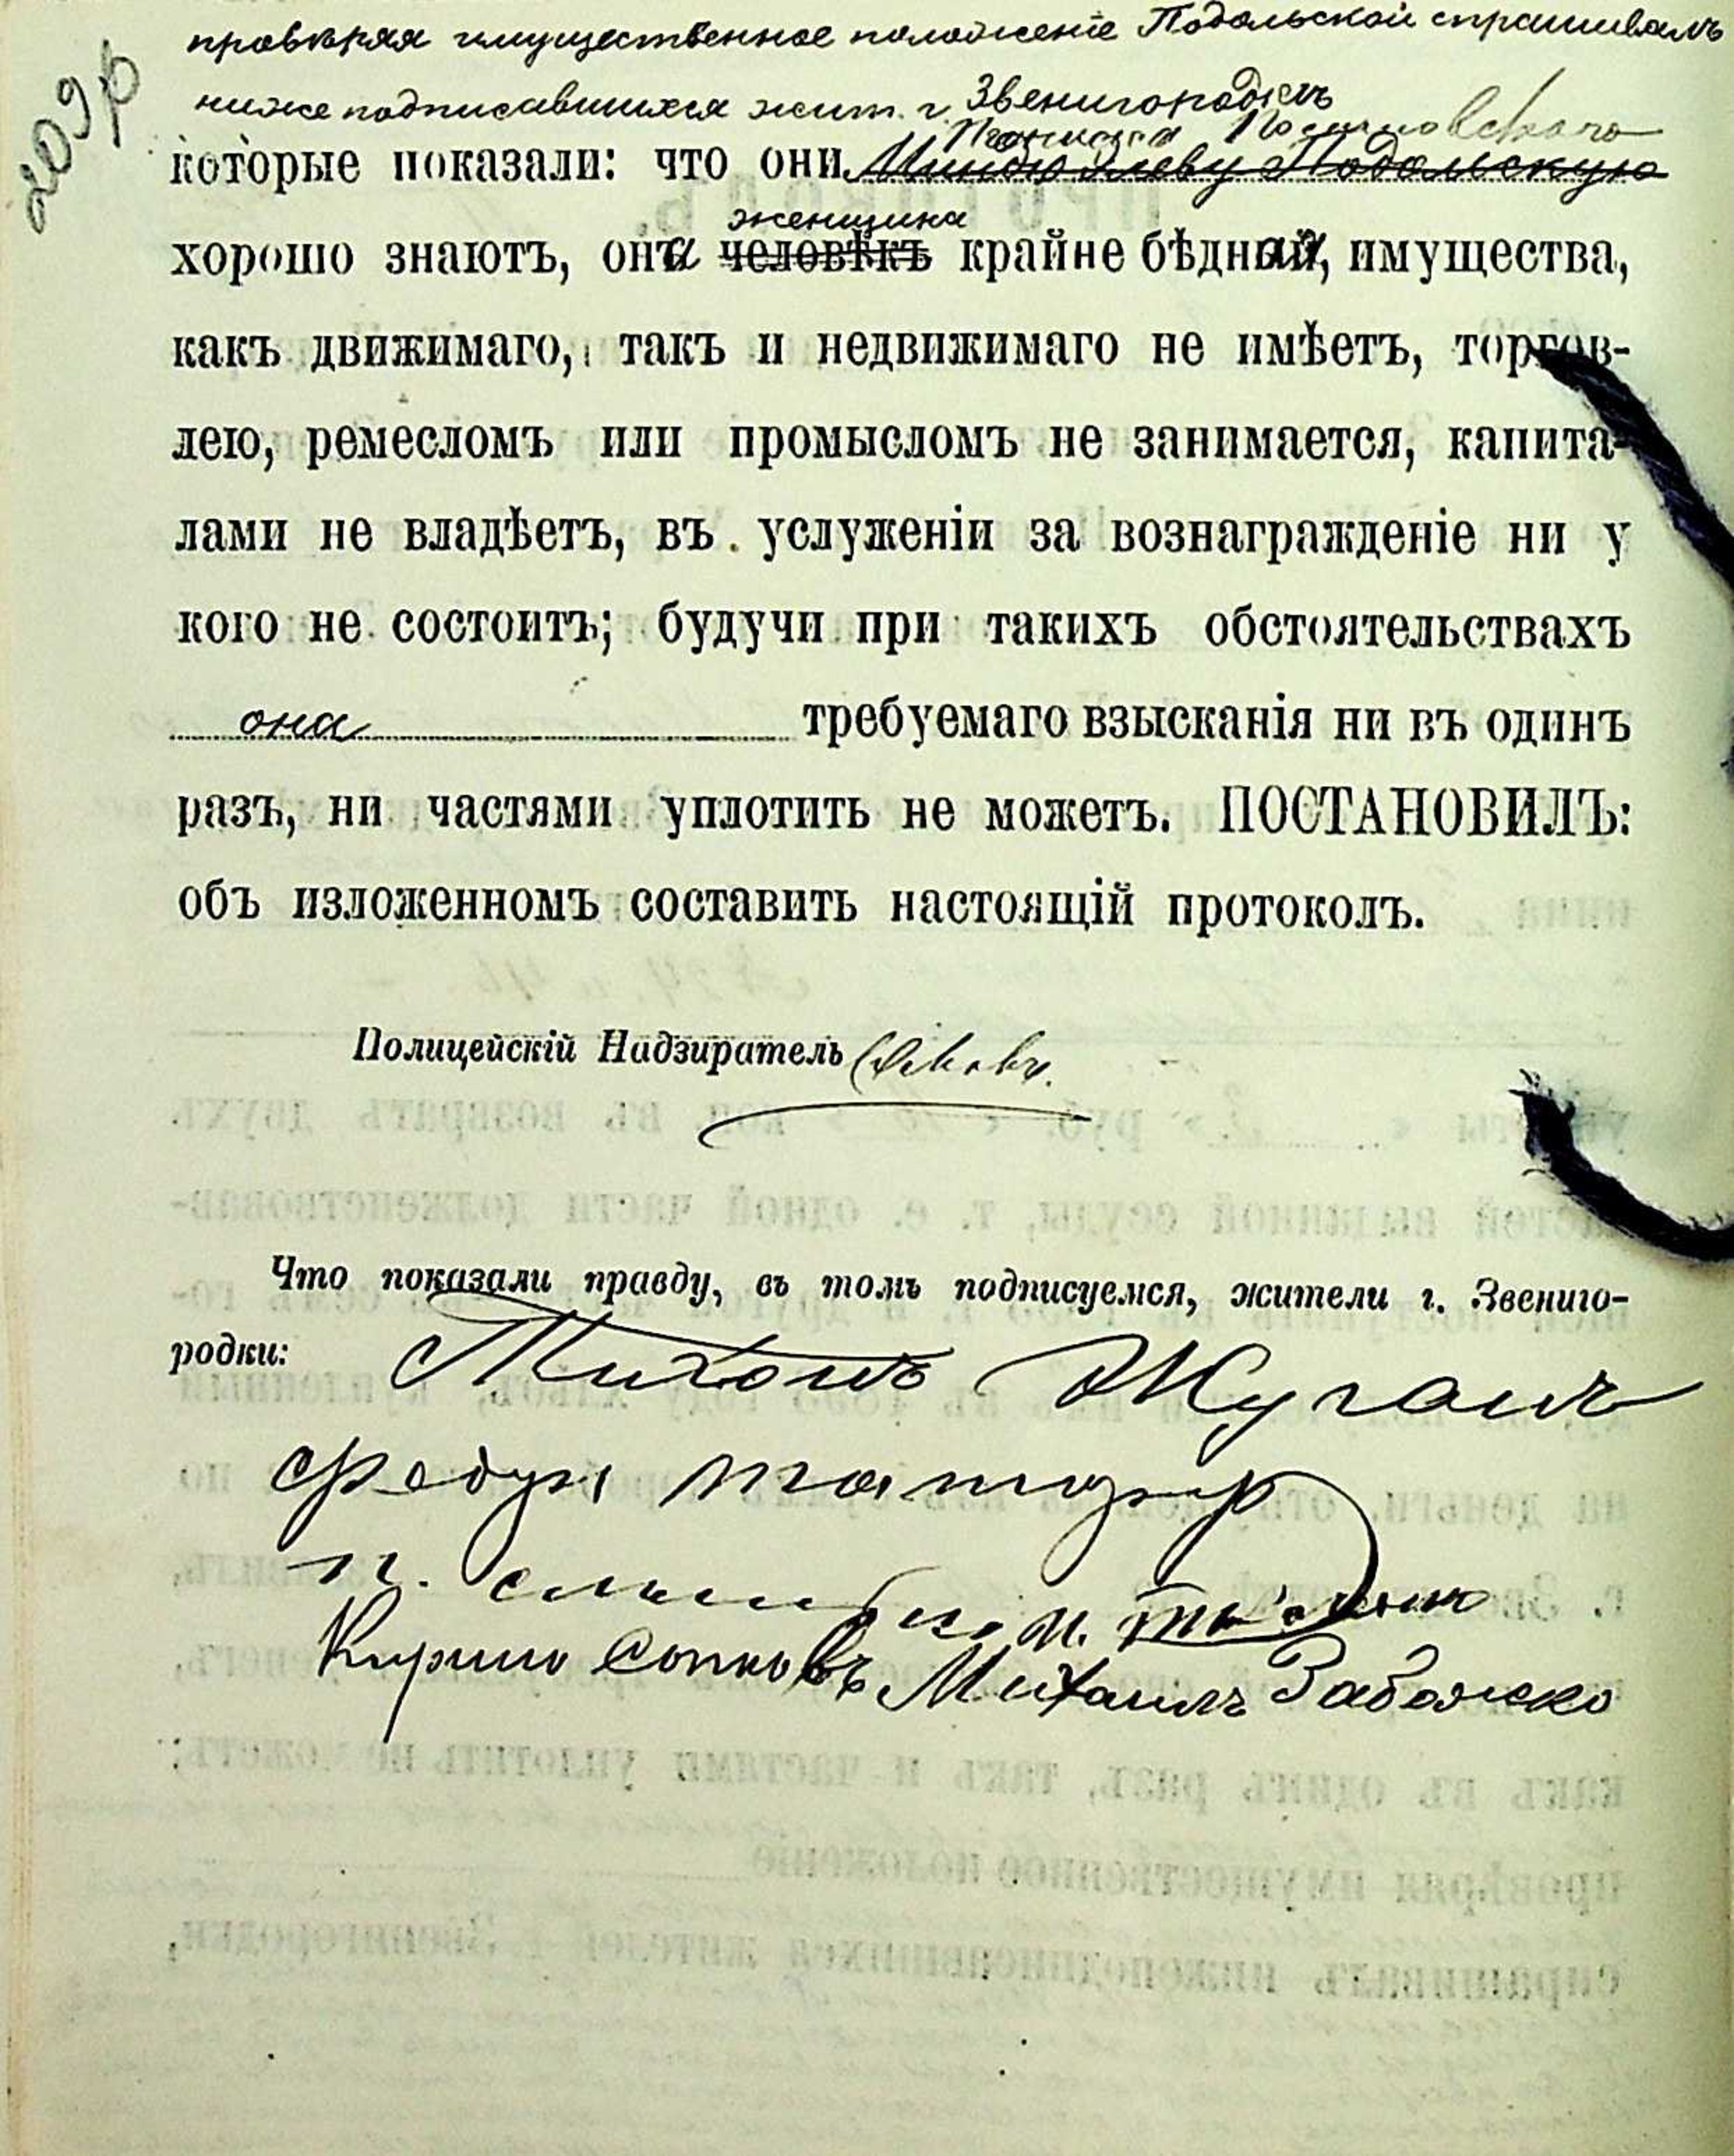 209 р
провѣряя имущественное положеніе Подольской спрашивалъ
нижеподписавшихся жит. г. Звенигородки
которые показали: что они
женщина
хорошо знаютъ, она человѣкъ крайне бѣдная, имущества,
какъ движимаго, такъ и недвижимаго не имѣетъ, торгов-
лею, ремесломъ или промысломъ не занимается, капита-
лами не владѣетъ, въ услуженіи за вознагражденіе ни у
кого не состоитъ; будучи при такихъ обстоятельствахъ
она требуемаго взысканія ни въ одинъ
разъ, ни частями уплотить не можетъ. ПОСТАНОВИЛЪ:
объ изложенномъ составить настоящій протоколъ.
Полицейскій Надзиратель
Что показали правду, въ томъ подписуемся, жители г. Звениго-
родки: Тихонъ Жуганъ
Кирило Сопковъ Михаилъ Забожко